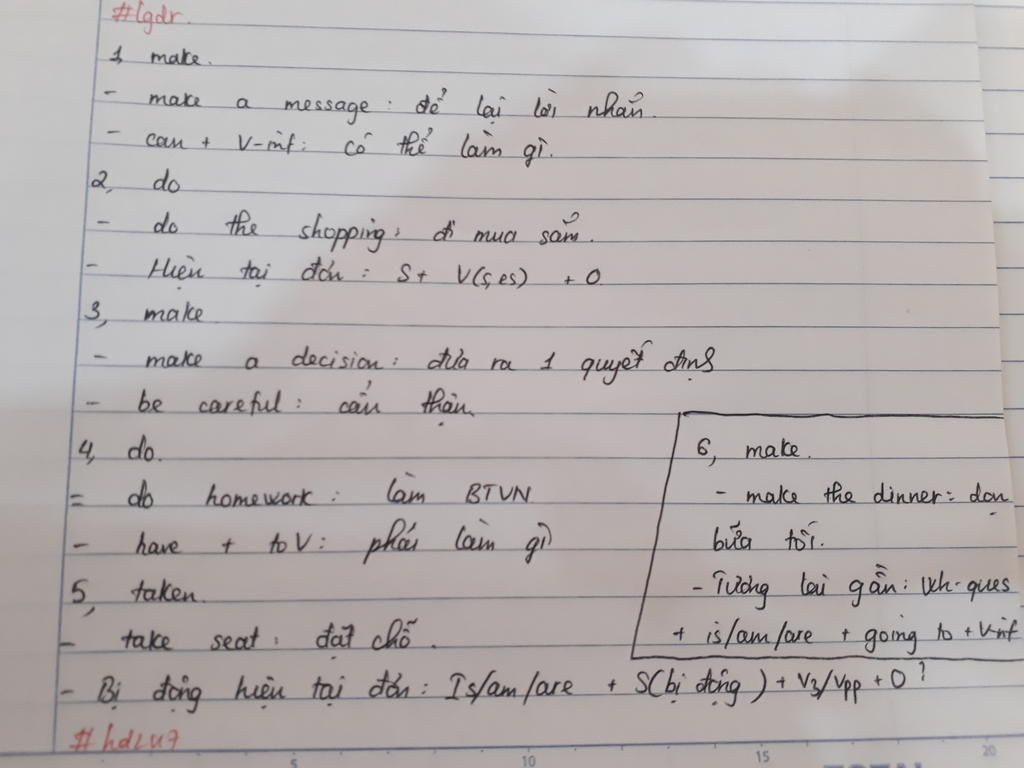 #lgdr.
1 make.
- make a message: để lại lời nhắn.
- can + V-inf: có thể làm gì.
2, do
- do the shopping: đi mua sắm.
- Hiện tại đơn: S+ V(s,es) + O
3, make
- make a decision: đưa ra 1 quyết định
- be careful: cẩn thận.
4, do.
= do homework: làm BTVN
- have + to V: phải làm gì
5, taken.
- take seat: đặt chỗ.
- Bị động hiện tại đơn: Is/am/are + S(bị động) + V3/Vpp + O?
6, make.
- make the dinner: dọn
bữa tối.
- Tương lai gần: Wh-ques
+ is/am/are + going to + V-inf
5 10 15 20